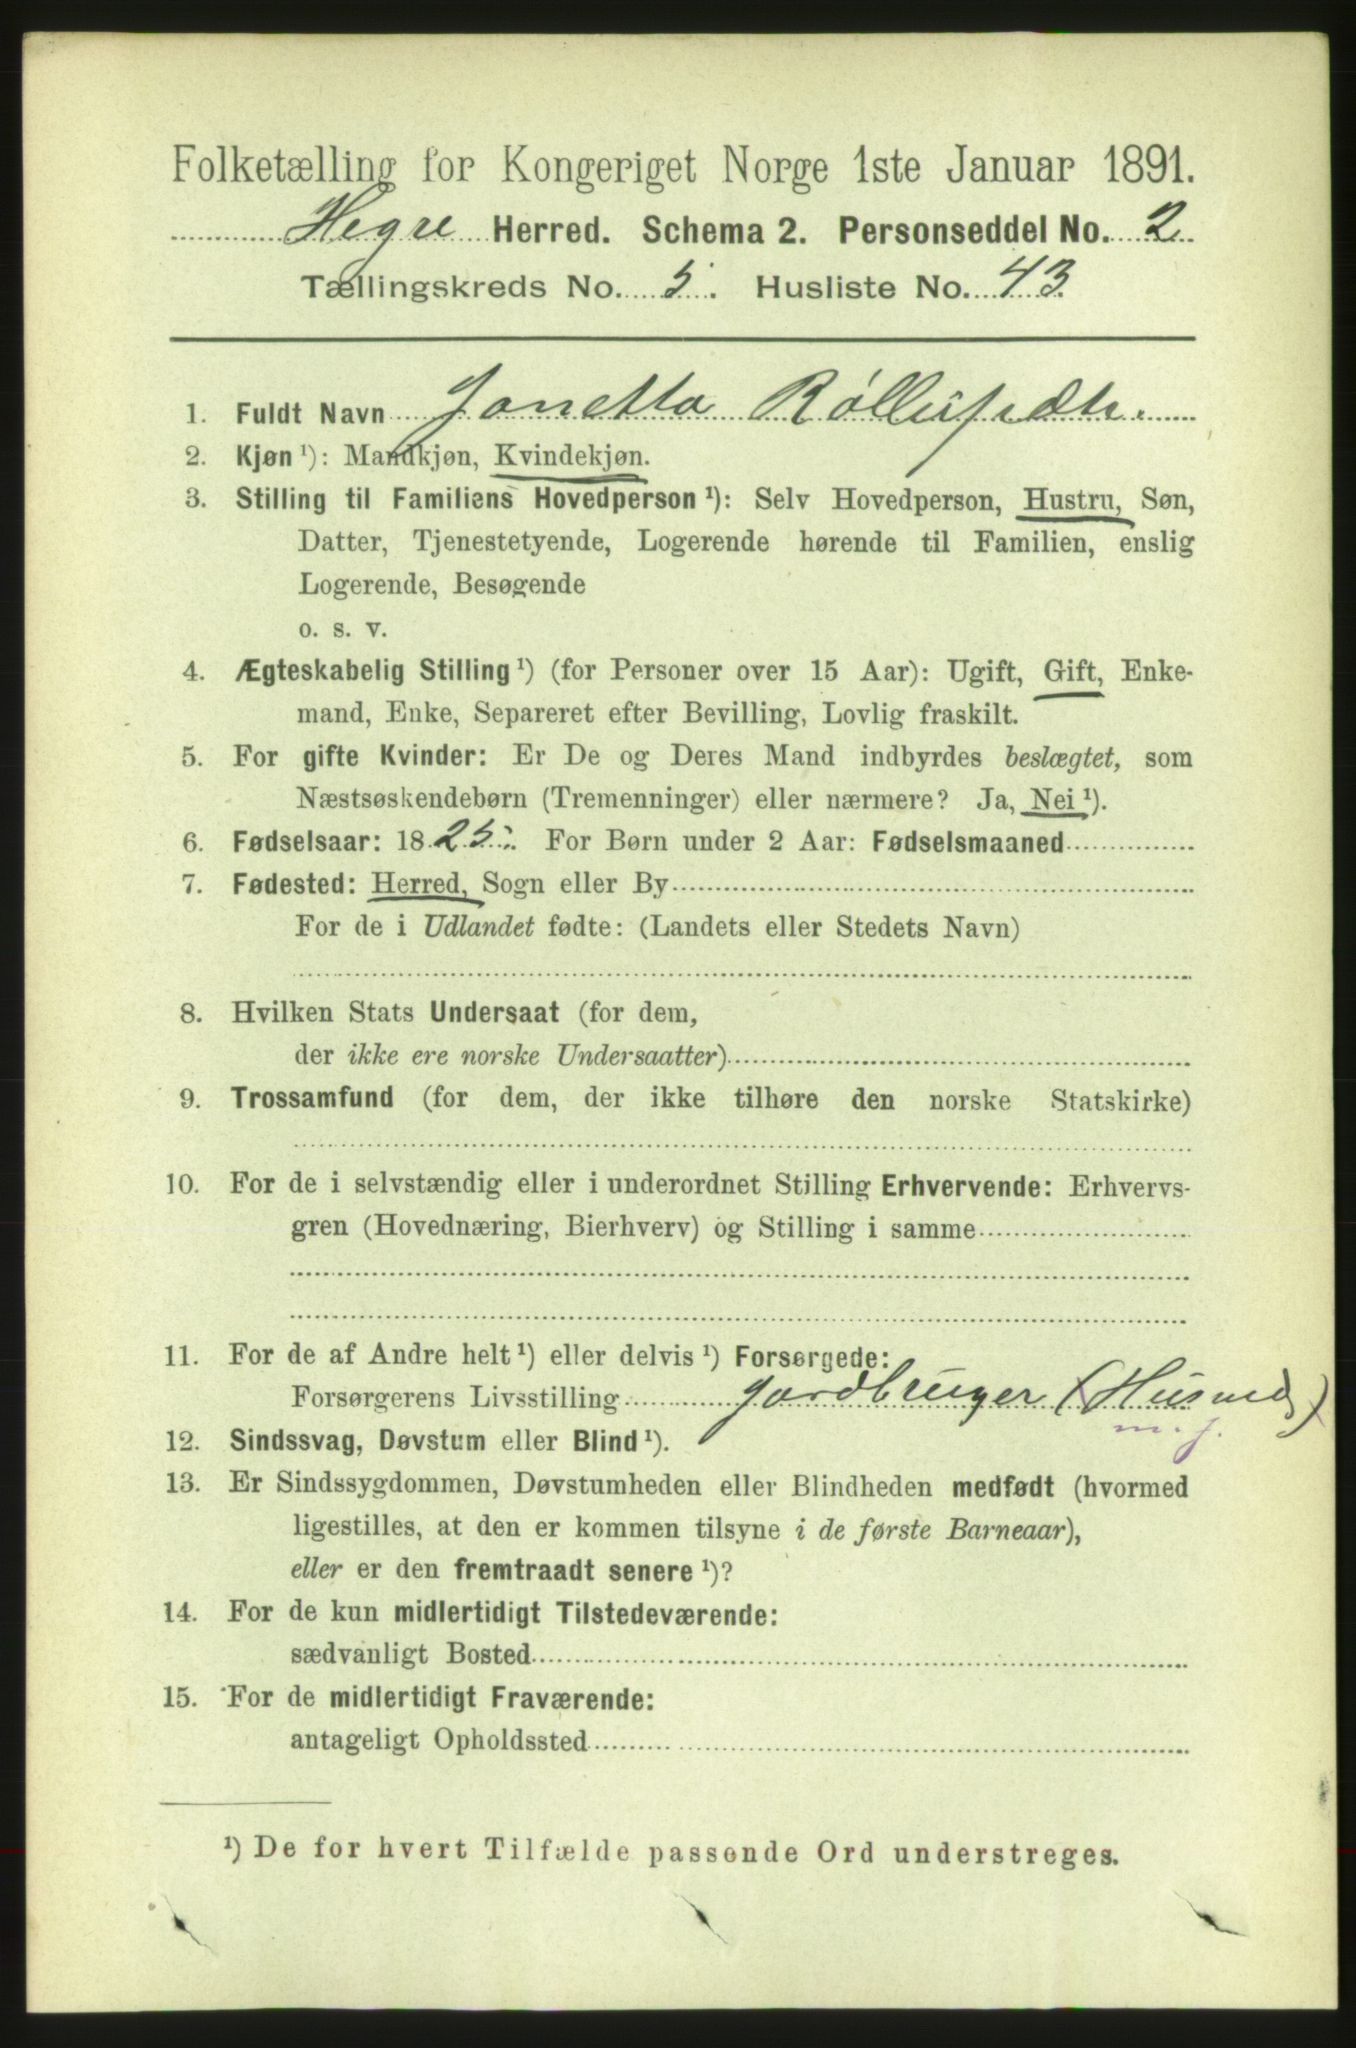 Folketælling for Kongeriget Norge 1ste Januar 1891.
Hegre Herred. Schema 2. Personseddel No. 2
Tællingskreds No. 5. Husliste No. 43
1. Fuldt Navn Jonetta
2. Kjøn ¹): Mandkjøn, Kvindekjøn.
3. Stilling til Familiens Hovedperson ¹): Selv Hovedperson, Hustru, Søn,
Datter, Tjenestetyende, Logerende hørende til Familien, enslig
Logerende, Besøgende
o. s. v.
4. Ægteskabelig Stilling ¹) (for Personer over 15 Aar): Ugift, Gift, Enke-
mand, Enke, Separeret efter Bevilling, Lovlig fraskilt.
5. For gifte Kvinder: Er De og Deres Mand indbyrdes beslægtet, som
Næstsøskendebørn (Tremenninger) eller nærmere? Ja, Nei ¹).
6. Fødselsaar: 1825. For Børn under 2 Aar: Fødselsmaaned
7. Fødested: Herred, Sogn eller By
For de i Udlandet fødte: (Landets eller Stedets Navn)
8. Hvilken Stats Undersaat (for dem,
der ikke ere norske Undersaatter)
9. Trossamfund (for dem, der ikke tilhøre den norske Statskirke)
10. For de i selvstændig eller i underordnet Stilling Erhvervende: Erhvervs-
gren (Hovednæring, Bierhverv) og Stilling i samme
11. For de af Andre helt ¹) eller delvis ¹) Forsørgede:
Forsørgerens Livsstilling Jordbruger (Husmd)
m. j.
12. Sindssvag, Døvstum eller Blind ¹).
13. Er Sindssygdommen, Døvstumheden eller Blindheden medfødt (hvormed
ligestilles, at den er kommen tilsyne i de første Barneaar),
eller er den fremtraadt senere ¹)?
14. For de kun midlertidigt Tilstedeværende:
sædvanligt Bosted
15. For de midlertidigt Fraværende:
antageligt Opholdssted
¹) De for hvert Tilfælde passende Ord understreges.